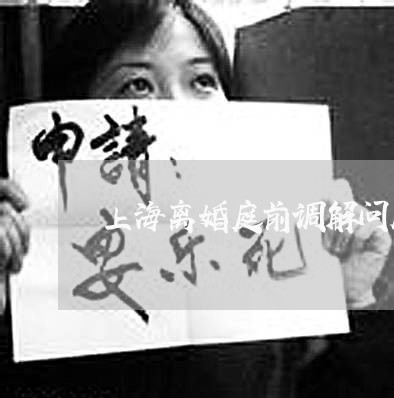 申請：
上海离婚庭前调解问
安乐死